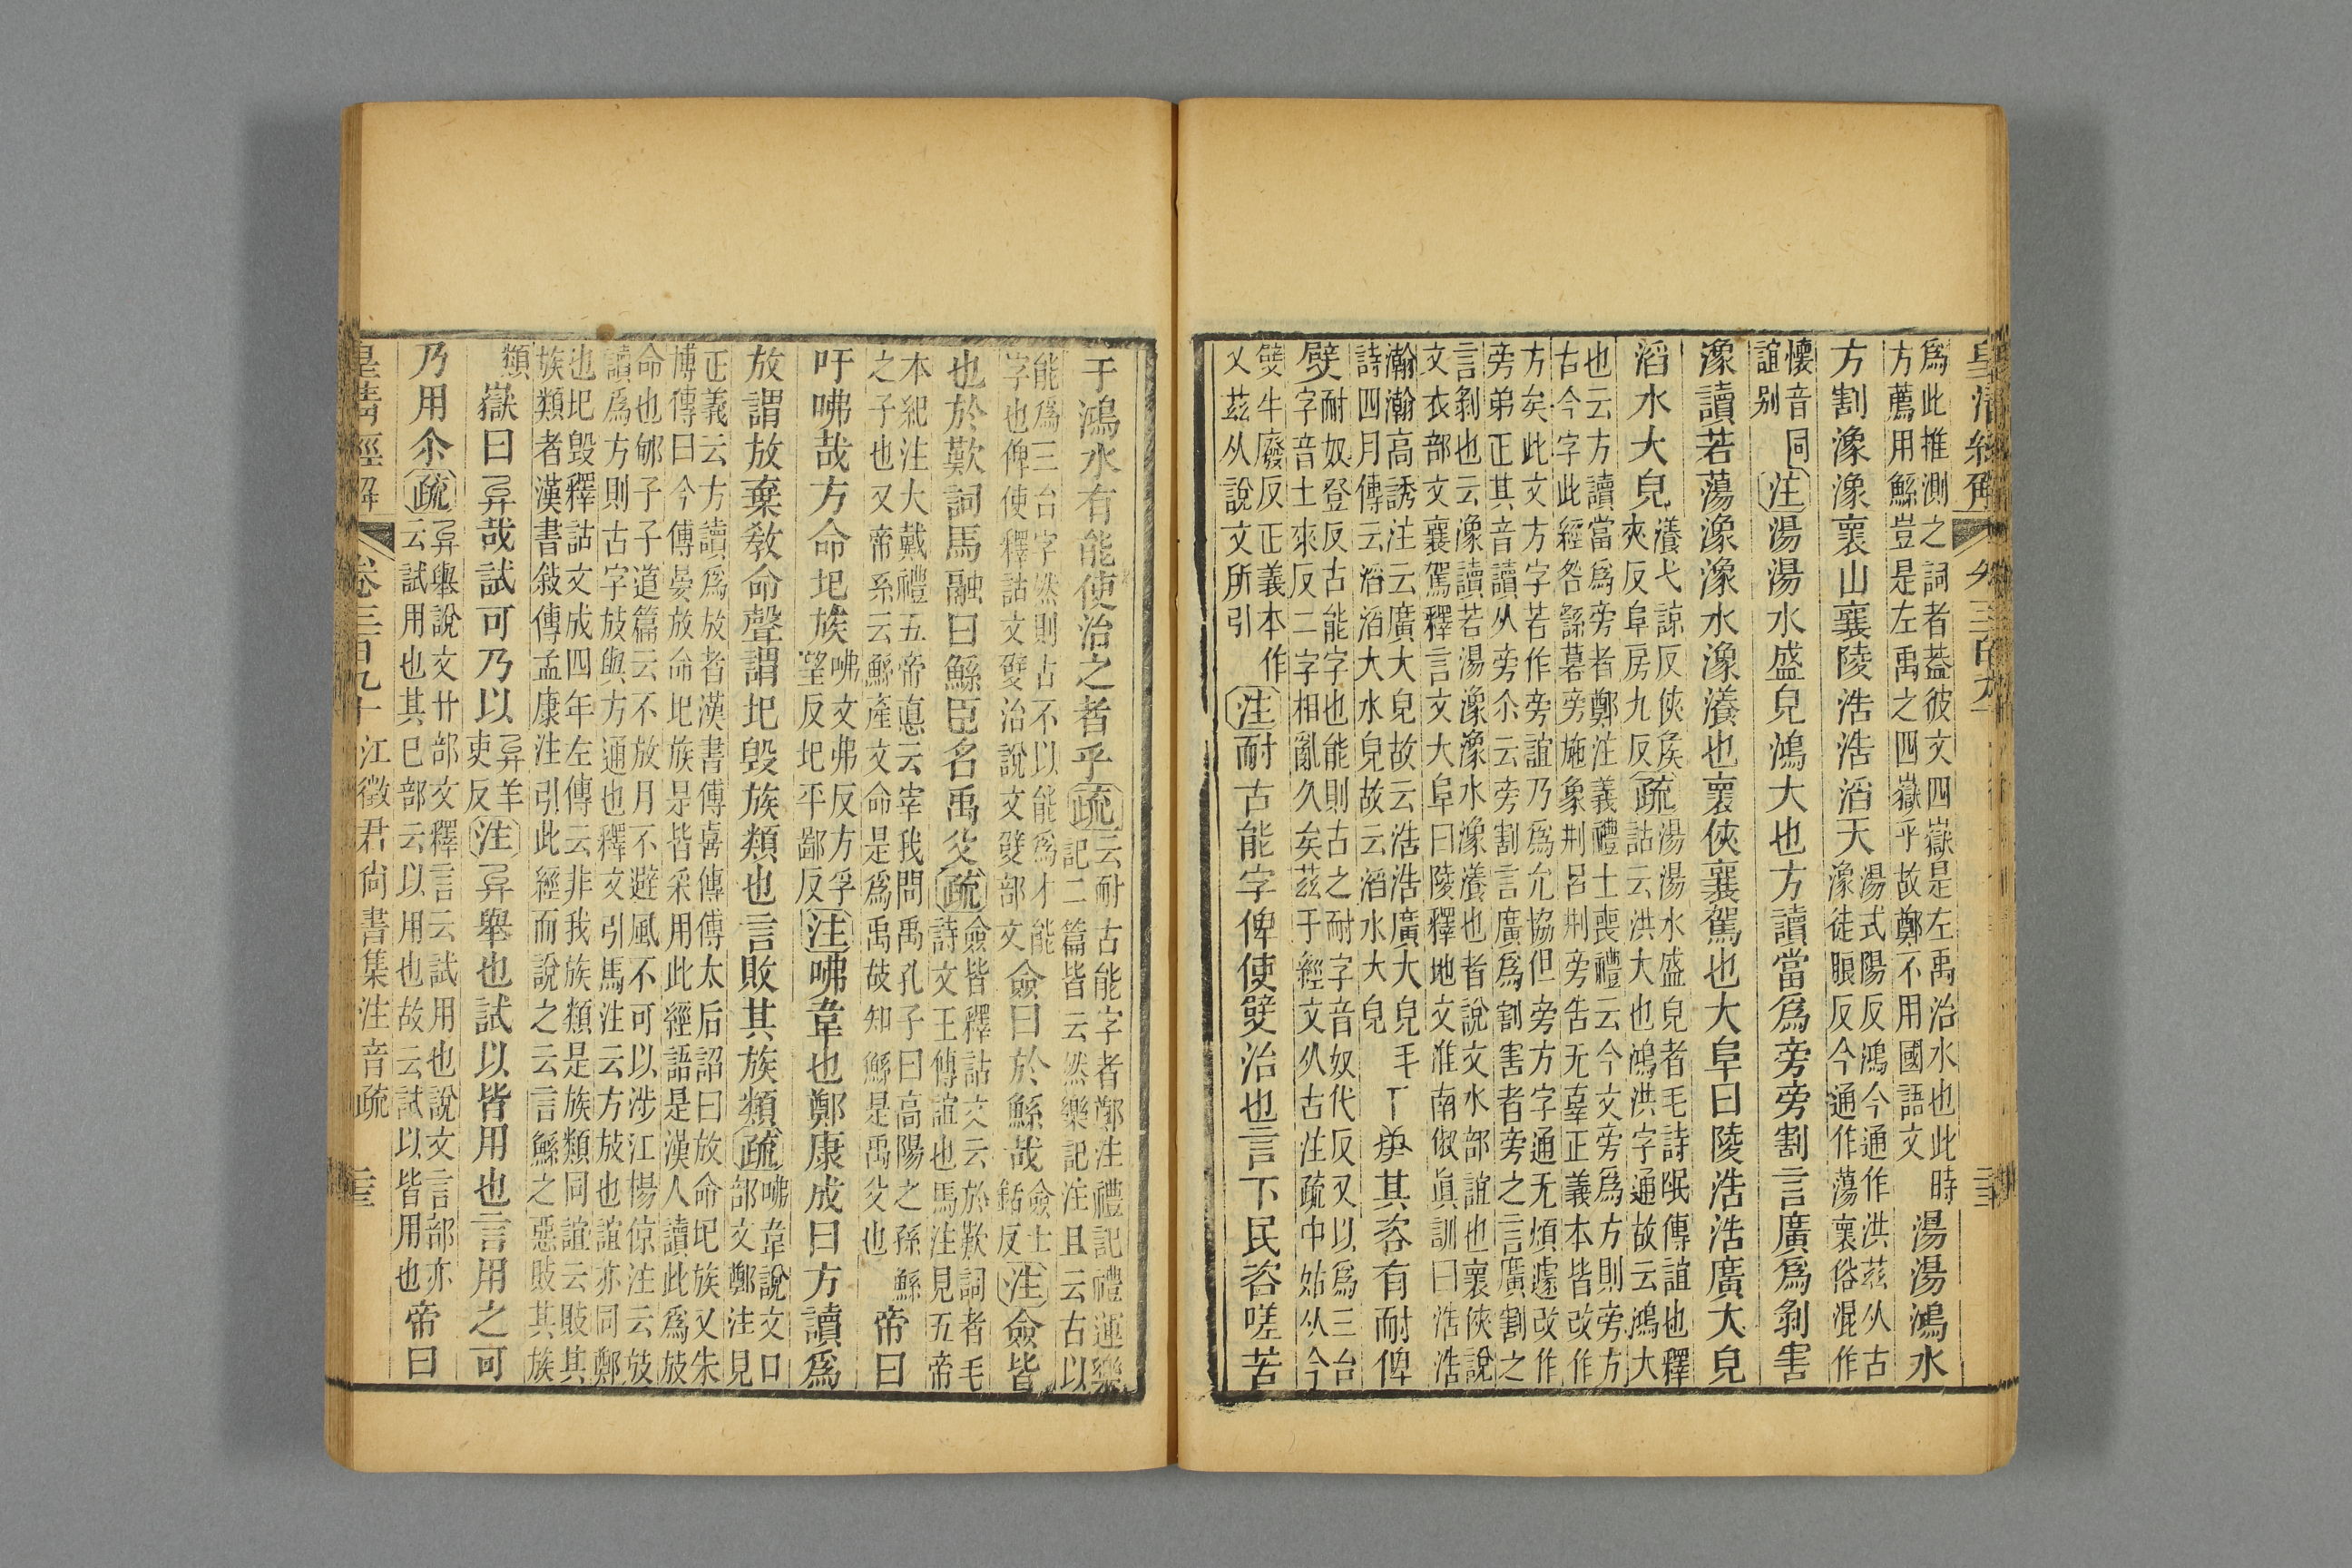 皇清經解 卷三百九
為此推測之詞者葢彼文四嶽是左禹治水也此時
方薦用鯀豈是左禹之四嶽乎故鄭不用國語文
湯湯鴻水
方割潒潒褱山襄陵浩浩滔天
湯式陽反鴻今通作洪茲从古
潒徒朖反今通作蕩褱俗混作
懷音同
誼别
注湯湯水盛皃鴻大也方讀當為旁旁割言廣為剝害
潒讀若蕩潒潒水潒瀁也褱俠襄駕也大阜曰陵浩浩廣大皃
滔水大皃
瀁弋諒反俠矦
夾反阜房九反
疏
湯湯水盛皃者毛詩氓傳誼也釋
詁云洪大也鴻洪字通故云鴻大
也云方讀當為旁者鄭注義禮士喪禮云今文旁為方則旁方
古今字此經咎繇暮旁施象荆呂荆旁告无辜正義本皆改作
方矣此文方字若作旁誼乃為允協但旁方字通无煩遽改作
旁弟正其音讀从旁尒云旁割言廣為割害者旁之言廣割之
言剝也云潒讀若湯潒潒水潒瀁也者說文水部誼也褱俠說
文衣部文襄駕釋言文大阜曰陵釋地文淮南俶眞訓曰浩浩
瀚瀚高誘注云廣大皃故云浩浩廣大皃毛
詩四月傳云滔滔大水皃故云滔水大皃
丅其咨有耐俾
𨐨
耐奴登反古能字也能則古之耐字音奴代反又以為三台
字音土來反二字相亂久矣茲于經文从古注疏中姑从今
𨐨牛廢反正義本作
乂茲从說文所引
注耐古能字俾使𨐨治也言下民咨嗟苦
于鴻水有能使治之者乎疏
云耐古能字者鄭注禮記禮運樂
記二篇皆云然樂記注且云古以
能為三台字然則古不以能為才能
字也俾使釋詁文𨐨治說文𨐨部文
僉曰於鯀哉
僉士
銛反
注僉皆
也於歎詞馬融曰鯀臣名禹父疏
僉皆釋詁文云於歎詞者毛
詩文王傳誼也馬注見五帝
本紀注大戴禮五帝悳云宰我問禹孔子曰高陽之孫鯀
之子也又帝系云鯀產文命是為禹故知鯀是禹父也
帝曰
吁咈哉方命圮族
咈文弗反方孚
望反圮平鄙反
注咈韋也鄭康成曰方讀為
放謂放棄敎命聲謂圮毁族類也言敗其族類疏
咈韋說文口
部文鄭注見
正義云方讀為放者漢書傅喜傳傅太后詔曰放命圮族又朱
博傳曰今傅晏放命圮族是皆采用此經語是漢人讀此為放
命也郇子子道篇云不放月不避風不可以涉江楊倞注云放
讀為方則古字放與方通也釋文引馬注云方放也誼亦同鄭
也圮毁釋詁文成四年左傳云非我族類是族類同誼云敗其
族類者漢書敍傳孟康注引此經而說之云言鯀之惡敗其族
類
嶽曰异哉試可乃以
异羊
吏反
注异舉也試以皆用也言用之可
乃用尒疏
异舉說文廾部文釋言云試用也說文言部亦
云試用也其巳部云以用也故云試以皆用也
帝曰
皇清經解 卷三百九十 江徵君尚書集注音疏